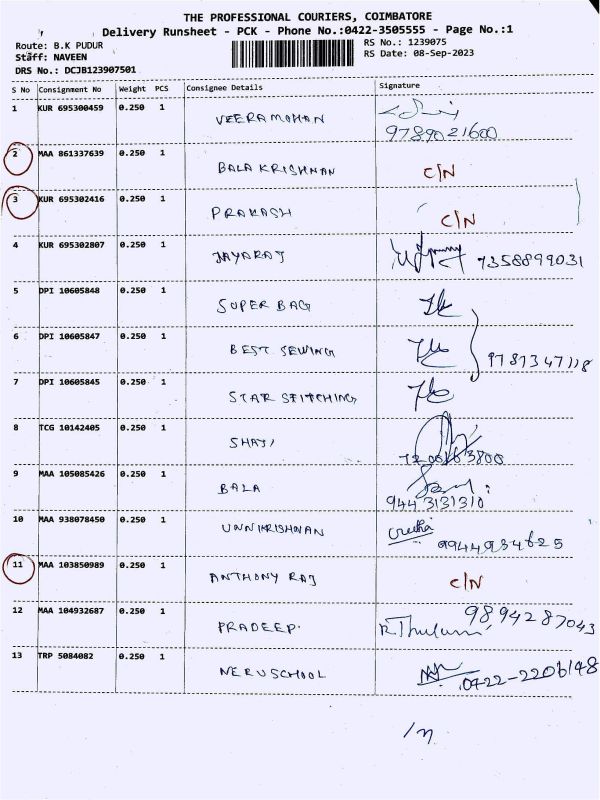 THE PROFESSIONAL COURIERS, COIMBATORE
Delivery Runsheet - PCK - Phone No.:0422-3505555 - Page No.:1
Route: B.K PUDUR RS No.: 1239075
Staff: NAVEEN RS Date: 08-Sep-2023
DRS No.: DCJB123907501
S No Consignment No Weight PCS Consignee Details Signature
1 KUR 695300459 0.250 1 VEERAMOHAN
9789021600
2 MAA 861337639 0.250 1 BALA KRISHNAN C/N
3 KUR 695302416 0.250 1 PRAKASH C/N
4 KUR 695302807 0.250 1 JAYARAJ 7358899031
5 DPI 10605848 0.250 1 SUPER BAG
6 DPI 10605847 0.250 1 BEST SEWING 9787347118
7 DPI 10605845 0.250 1 STAR STITCHING
8 TCG 10142405 0.250 1 SHAJI
9 MAA 105085426 0.250 1 BALA
9443131310
10 MAA 938078450 0.250 1 UNNIKRISHNAN
9944934625
11 MAA 103850989 0.250 1 ANTHONY RAJ C/N
12 MAA 104932687 0.250 1 PRADEEP. 9894287043
13 TRP 5084082 0.250 1 NERUSCHOOL 0422-2206148